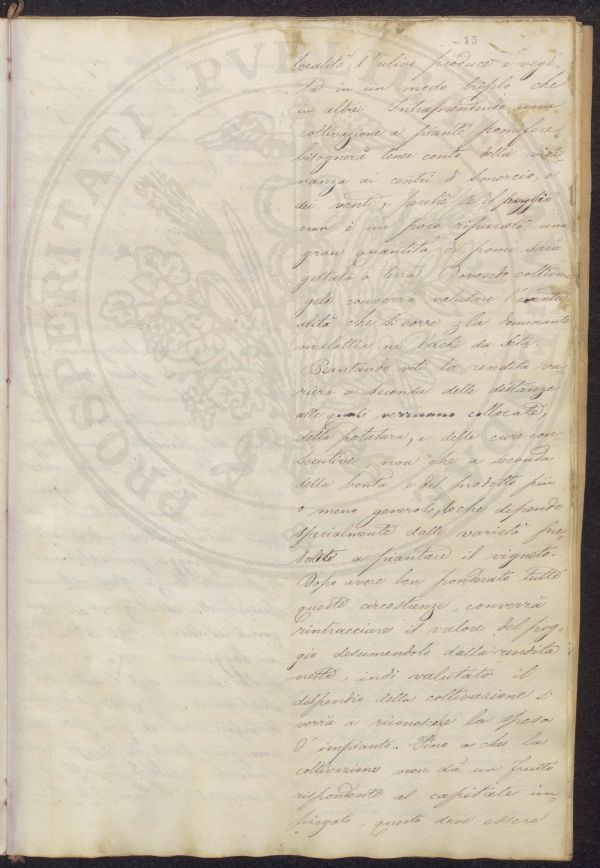 15
località l'ulivo produce e vege-
ta in un modo triplo che
in altre. Intraprendendo una
coltivazione a piante pomifere
bisognerà tener conto della vici-
nanza ai centri di smercio, e
dei venti, perchè se il poggio
non è un poco riparato una
gran quantità di pomi sarà
gettata a terra. Dovendo coltivare
gelsi converrà valutare l'eventu-
alità che si corre la dominante
malattia nei bachi da seta.
Piantando viti la rendita va-
rierà a seconda delle distanze
alle quali verranno collocate,
della potatura, e delle cure con-
secutive, non che a seconda
della bontà e del prodotto più
o meno generoso, loche dipende
specialmente dalle varietà pre-
scelte a piantare il vigneto.
Dopo avere ben ponderate tutte
queste circostanze, converrà
rintracciare il valore del pog-
gio desumendolo dalla rendita
netta, indi valutato il
dispendio della coltivazione si
verrà a riconoscere la spesa
d'impianto. Fino a che la
coltivazione non dà un frutto
rispondente al capitale im-
piegato, questo deve essere
PROSPERITATI PVBLI